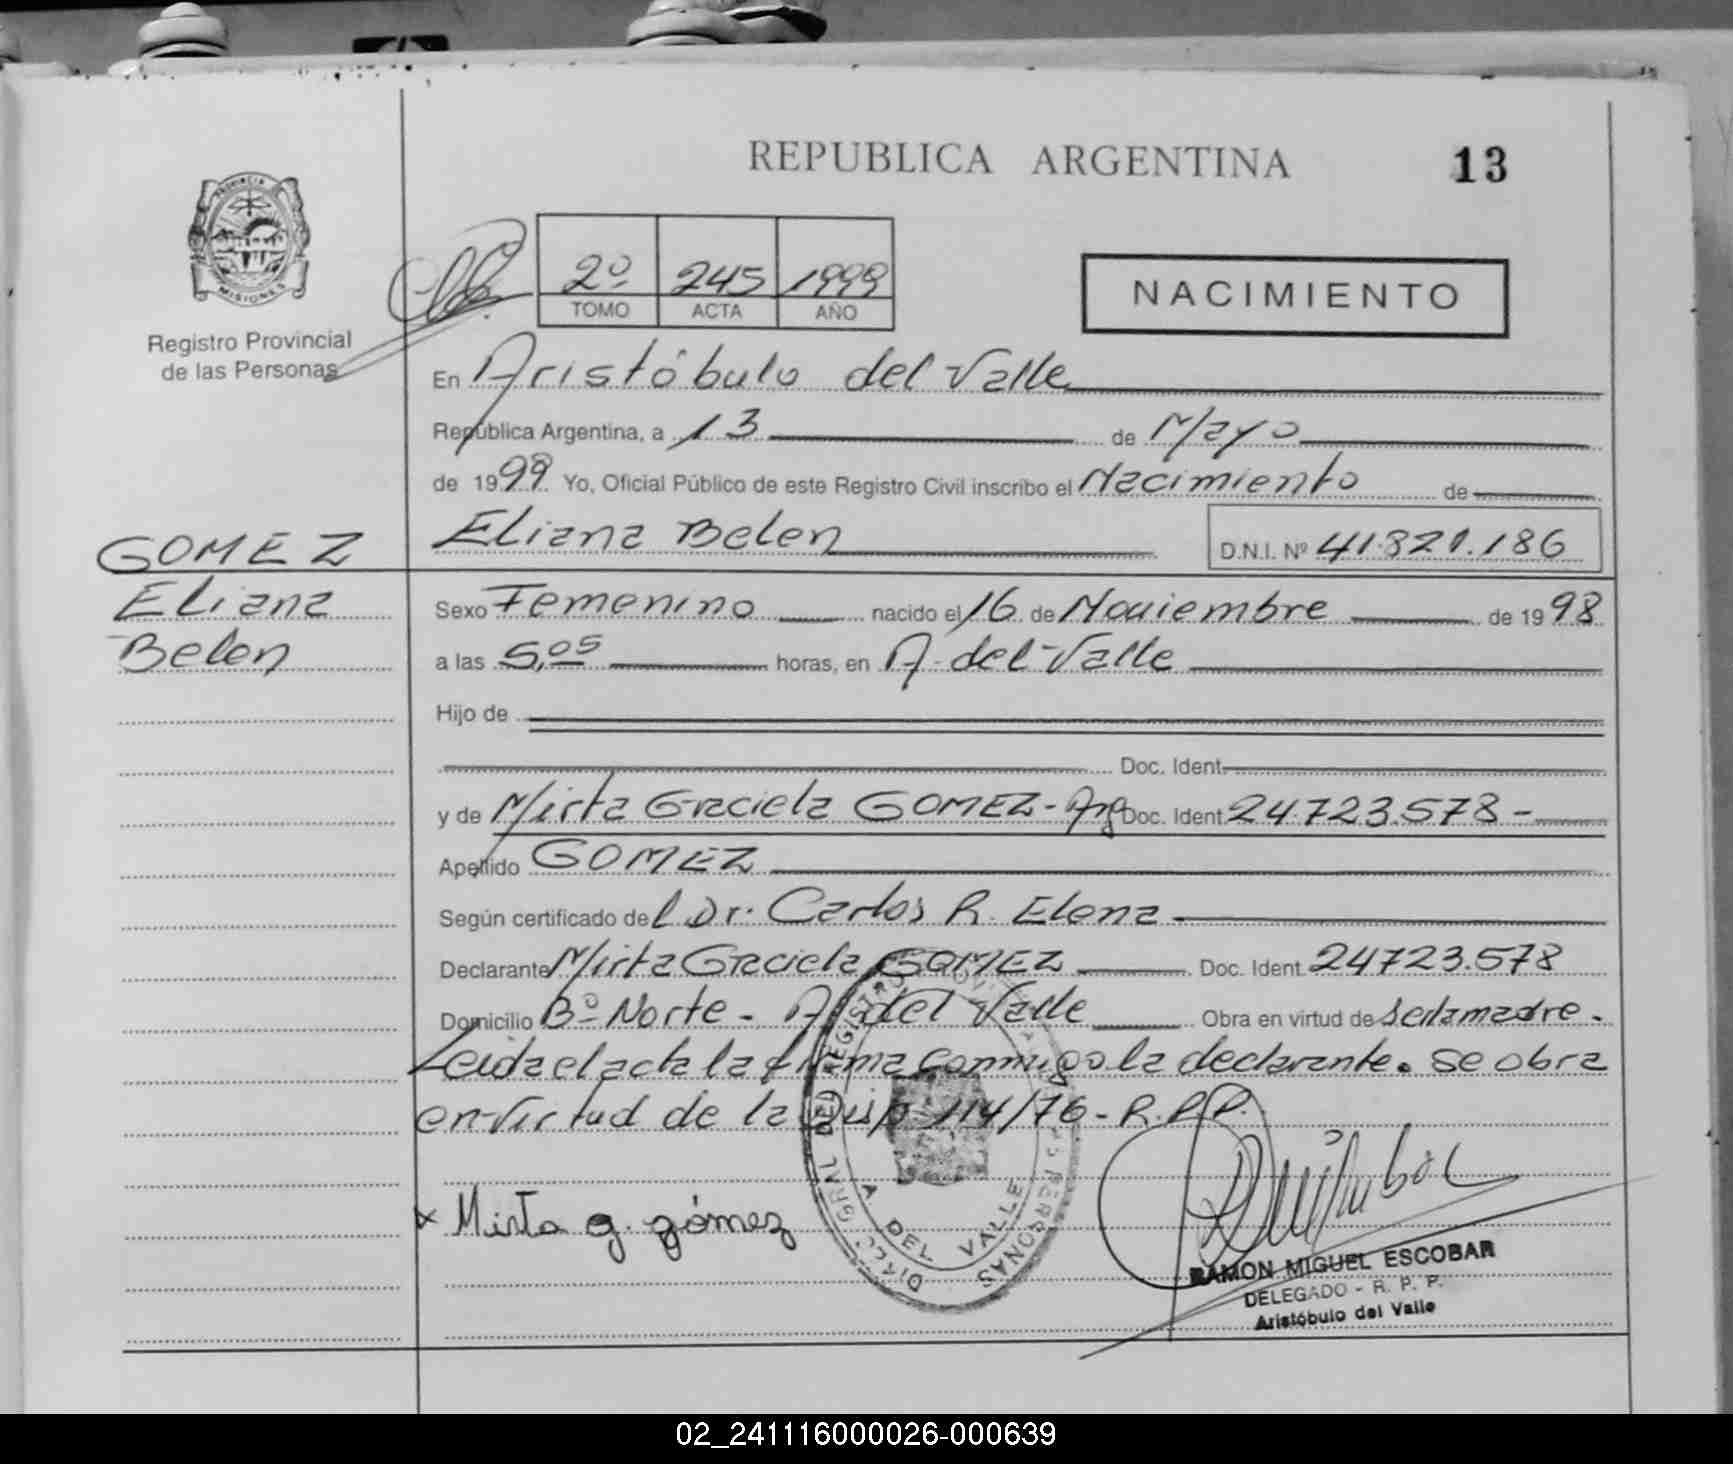 REPUBLICA ARGENTINA 13
PROVINCIA DE
MISIONES
Registro Provincial
de las Personas
2º 245 1999
TOMO ACTA AÑO
NACIMIENTO
En Aristóbulo del Valle
República Argentina, a 13 de Mayo
de 1999 Yo, Oficial Público de este Registro Civil inscribo el Nacimiento de
Eliana Belen D.N.I. Nº 41.821.186
GOMEZ
Eliana
Belen
Sexo Femenino nacido el 16 de Noviembre de 1998
a las 5,05 horas, en A. del Valle
Hijo de
Doc. Ident.
y de Mirta Graciela GOMEZ - Arg Doc. Ident. 24.723.578 -
Apellido GOMEZ
Según certificado del Dr. Carlos R. Elena
Declarante Mirta Graciela GOMEZ Doc. Ident. 24723.578
Domicilio Bº Norte - A. del Valle Obra en virtud de ser la madre.
Leida el acta la firma conmigo la declarante. Se obra
en virtud de la Disp 114/76 - R.P.P.
x Mirta g. gómez
DIRECC. GRAL DEL REGISTRO PERSONAS
A DEL VALLE
RAMON MIGUEL ESCOBAR
DELEGADO - R. P. P.
Aristóbulo del Valle
02_241116000026-000639